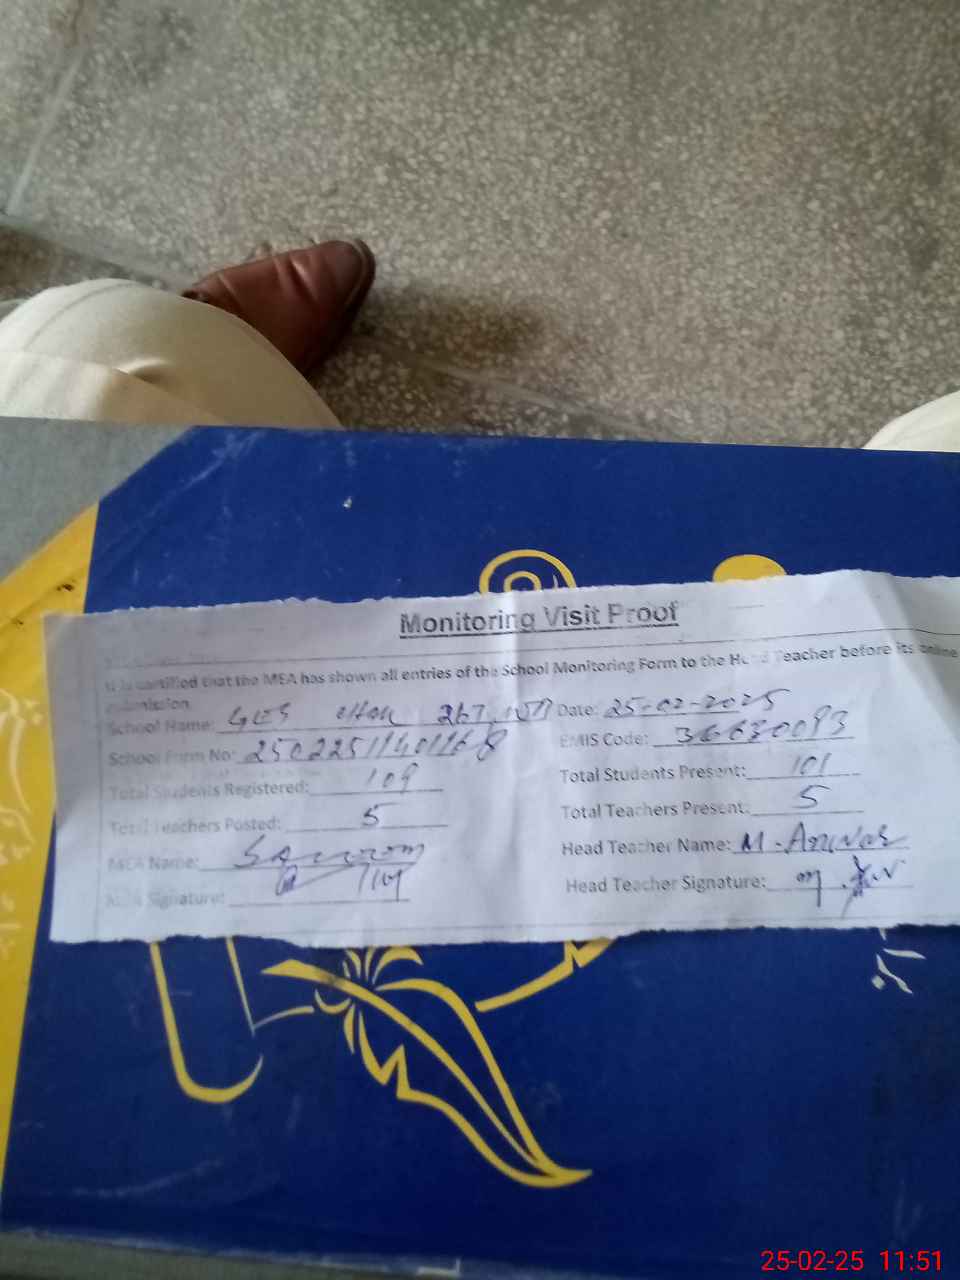 Monitoring Visit Proof
It is certified that the MEA has shown all entries of the School Monitoring Form to the Head Teacher before its online
submission.
School Name: GES Chak 267 Date: 25-02-2025
School Form No: EMIS Code: 36630093
Total Students Registered: 109 Total Students Present: 101
Total Teachers Posted: 5 Total Teachers Present: 5
MEA Name: Head Teacher Name: M. Anwar
MEA Signature: Head Teacher Signature:
25-02-25 11:51